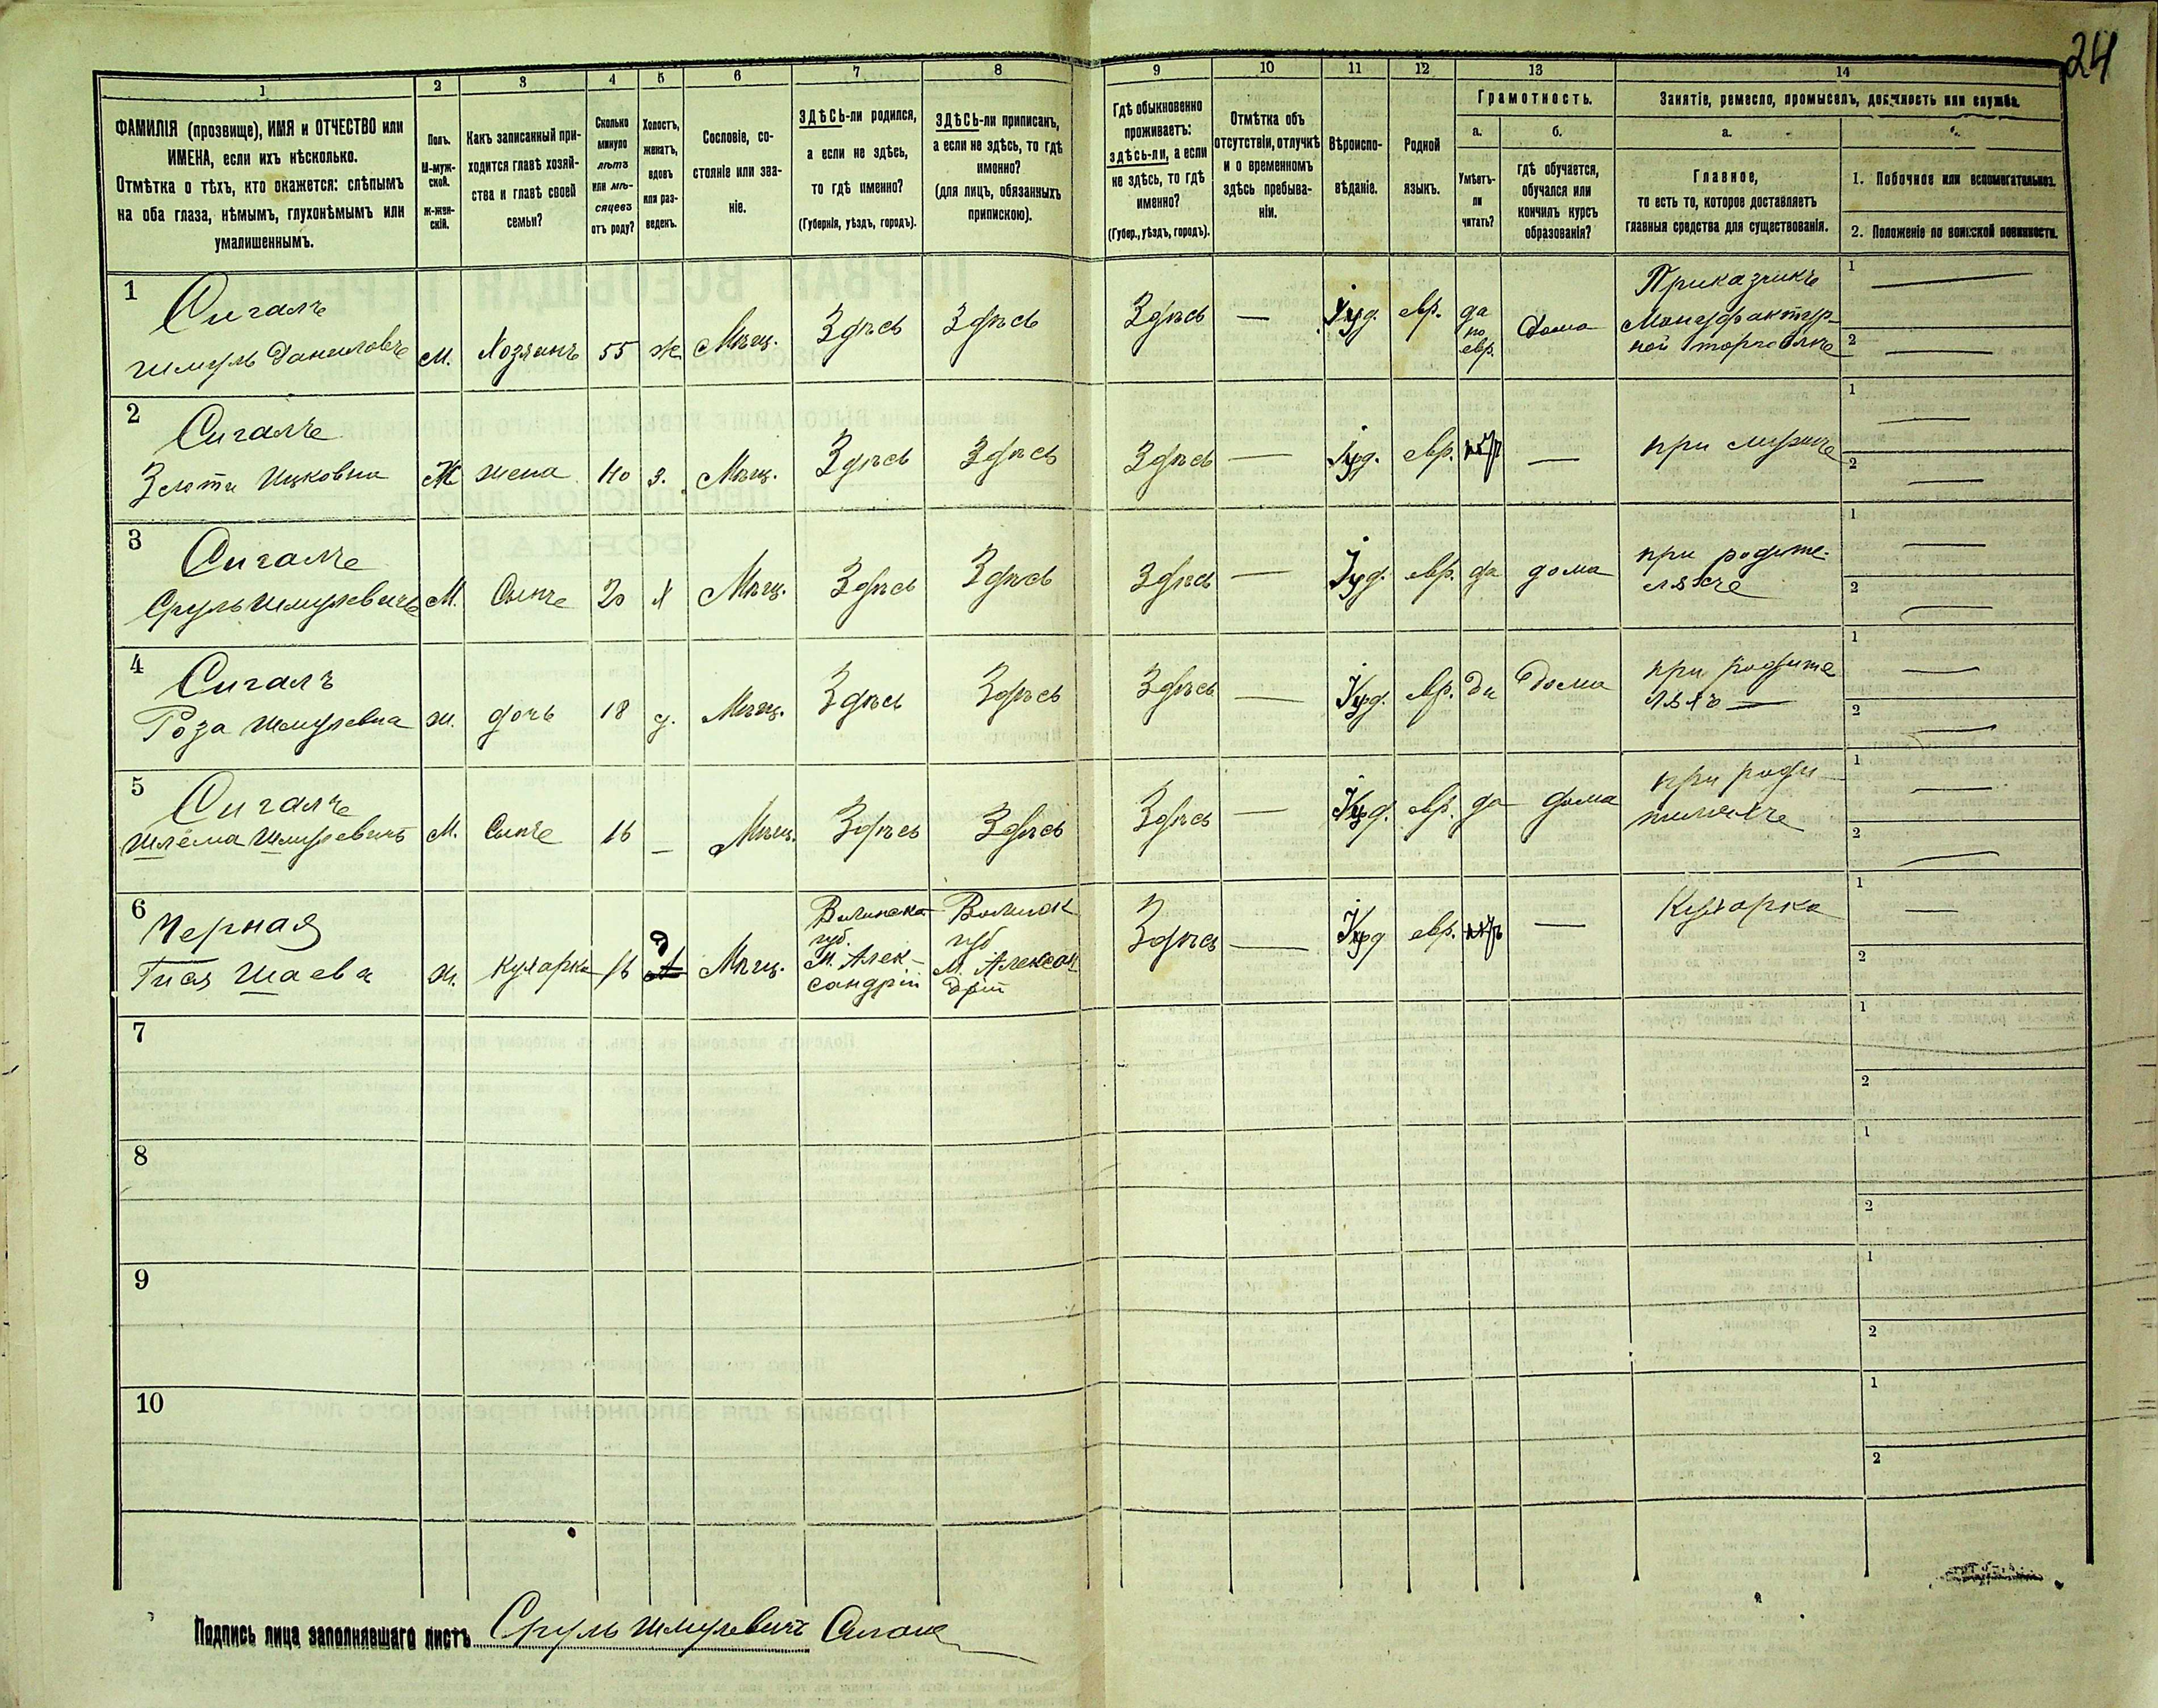 24
1 2 3 4 5 6 7 8 9 10 11 12 13 14
ФАМИЛІЯ (прозвище), ИМЯ и ОТЧЕСТВО или
ИМЕНА, если ихъ нѣсколько.
Отмѣтка о тѣхъ, кто окажется: слѣпымъ
на оба глаза, нѣмымъ, глухонѣмымъ или
умалишеннымъ.
Полъ.
М-муж-
ской.
Ж-жен-
скій.
Какъ записанный при-
ходится главѣ хозяй-
ства и главѣ своей
семьи?
Сколько
минуло
лѣтъ
или мѣ-
сяцевъ
отъ роду?
Холостъ,
женатъ,
вдовъ
или раз-
веденъ.
Сословіе, со-
стояніе или зва-
ніе.
ЗДѢСЬ-ли родился,
а если не здѣсь,
то гдѣ именно?
(Губернія, уѣздъ, городъ).
ЗДѢСЬ-ли приписанъ,
а если не здѣсь, то гдѣ
именно?
(для лицъ, обязанныхъ
припискою).
Гдѣ обыкновенно
проживаетъ:
здѣсь-ли, а если
не здѣсь, то гдѣ
именно?
(Губер., уѣздъ, городъ).
Отмѣтка объ
отсутствіи, отлучкѣ
и о временномъ
здѣсь пребыва-
ніи.
Вѣроиспо-
вѣданіе.
Родной
языкъ.
Грамотность.
а.
Умѣетъ-
ли
читать?
б.
гдѣ обучается,
обучался или
кончилъ курсъ
образованія?
Занятіе, ремесло, промыселъ, должность или служба.
а.
Главное,
то есть то, которое доставляетъ
главныя средства для существованія.
1. Побочное или вспомогательное.
2. Положеніе по воинской повинности.
1
Сигалъ
Шмуль Даниловъ М. Хозяинъ 55 ж. Мѣщ. Здѣсь Здѣсь Здѣсь — Іуд. евр. да по евр. дома
Приказчикъ
Мануфактур-
ной торговли
1 —
2 —
2
Сигалъ
Злота Ицковна Ж жена 40 з. Мѣщ. Здѣсь Здѣсь Здѣсь — Іуд. евр. — при мужѣ
1 —
2 —
3
Сигалъ
Сруль Шмулевичъ М. Сынъ 20 х Мѣщ. Здѣсь Здѣсь Здѣсь — Іуд. евр. да дома
при родите-
ляхъ
1 —
2 —
4
Сигалъ
Роза Шмулевна ж. дочь 18 д. Мѣщ. Здѣсь Здѣсь Здѣсь — Іуд. евр. да дома
при родите
ляхъ —
1 —
2 —
5
Сигалъ
Шлёма Шмулевичъ М. Сынъ 16 — Мѣщ. Здѣсь Здѣсь Здѣсь — Іуд. евр. да дома
при роди-
теляхъ
1 —
2 —
6
Черная
Гися Шаева ж. кухарка 16 д Мѣщ.
Волынска
губ.
М. Алек-
сандрій
Волынск
губ
М. Алексан
дрій
Здѣсь — Іуд евр. — Кухарка
1 —
2
7
1
2
8
1
2
9
1
2
10
1
2
Подпись лица заполнявшаго листъ Сруль Шмулевичъ Сигалъ